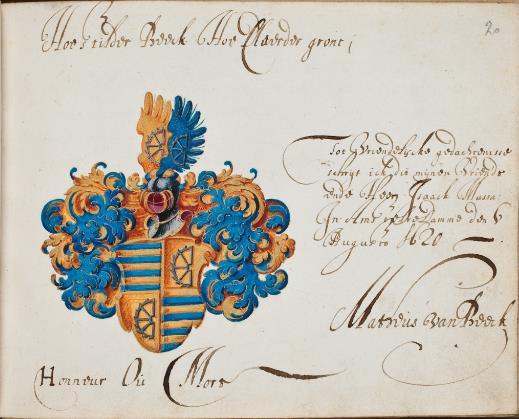 20
Hoe stilder Beeck Hoe Claerder gront
Tot Vriendelijcke gedachtenisse
schrijf ick dit mijnen Vriendt
ende Heer Isaack Massa
In Amsterdamme den
Augusto 1620
Matheus Van Beeck
Honneur Ou Mort